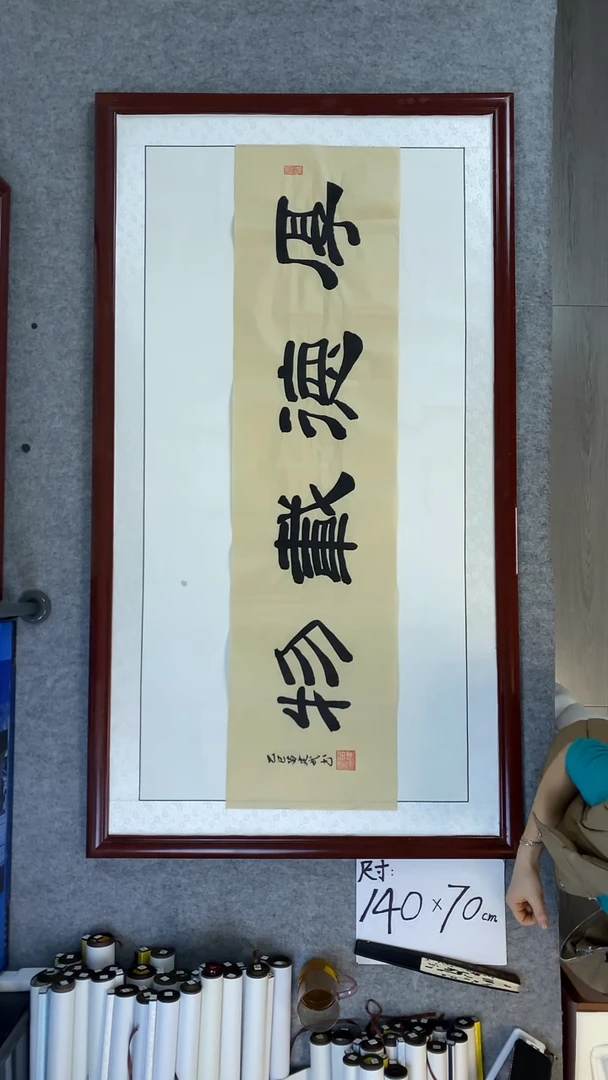 厚德載物
尺寸:
140×70cm